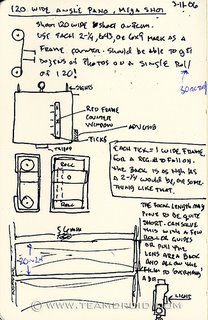 120 WIDE ANGLE PANO, MEGA SHOT
3-11-06
SHOOT 120 WIDE
USE EACH 2-1/4, 645, OR 6x9 MARK AS A
FRAME COUNTER - SHOULD BE ABLE TO GET
DOZENS OF PHOTOS ON A SINGLE ROLL
OF 120!
RED FRAME
COUNTER
WINDOW
TICKS
ROLL
ROLL
EACH TICK = 1 WIDE FRAME
FOR A REGULAR
THE BACK IS AS HIGH AS
A 2-1/4 WOULD BE, OR SOME
THING LIKE THAT.
THE FOCAL LENGTH MAY
HAVE TO BE QUITE
SHORT - CAN SOLVE
THIS WITH A FEW
ROLLER GUIDES
OR PULL THE
LENS AREA BACK
AND ALLOW THE
FILM TO OVERHANG
LIGHT
© WWW.TEAMDROID.COM